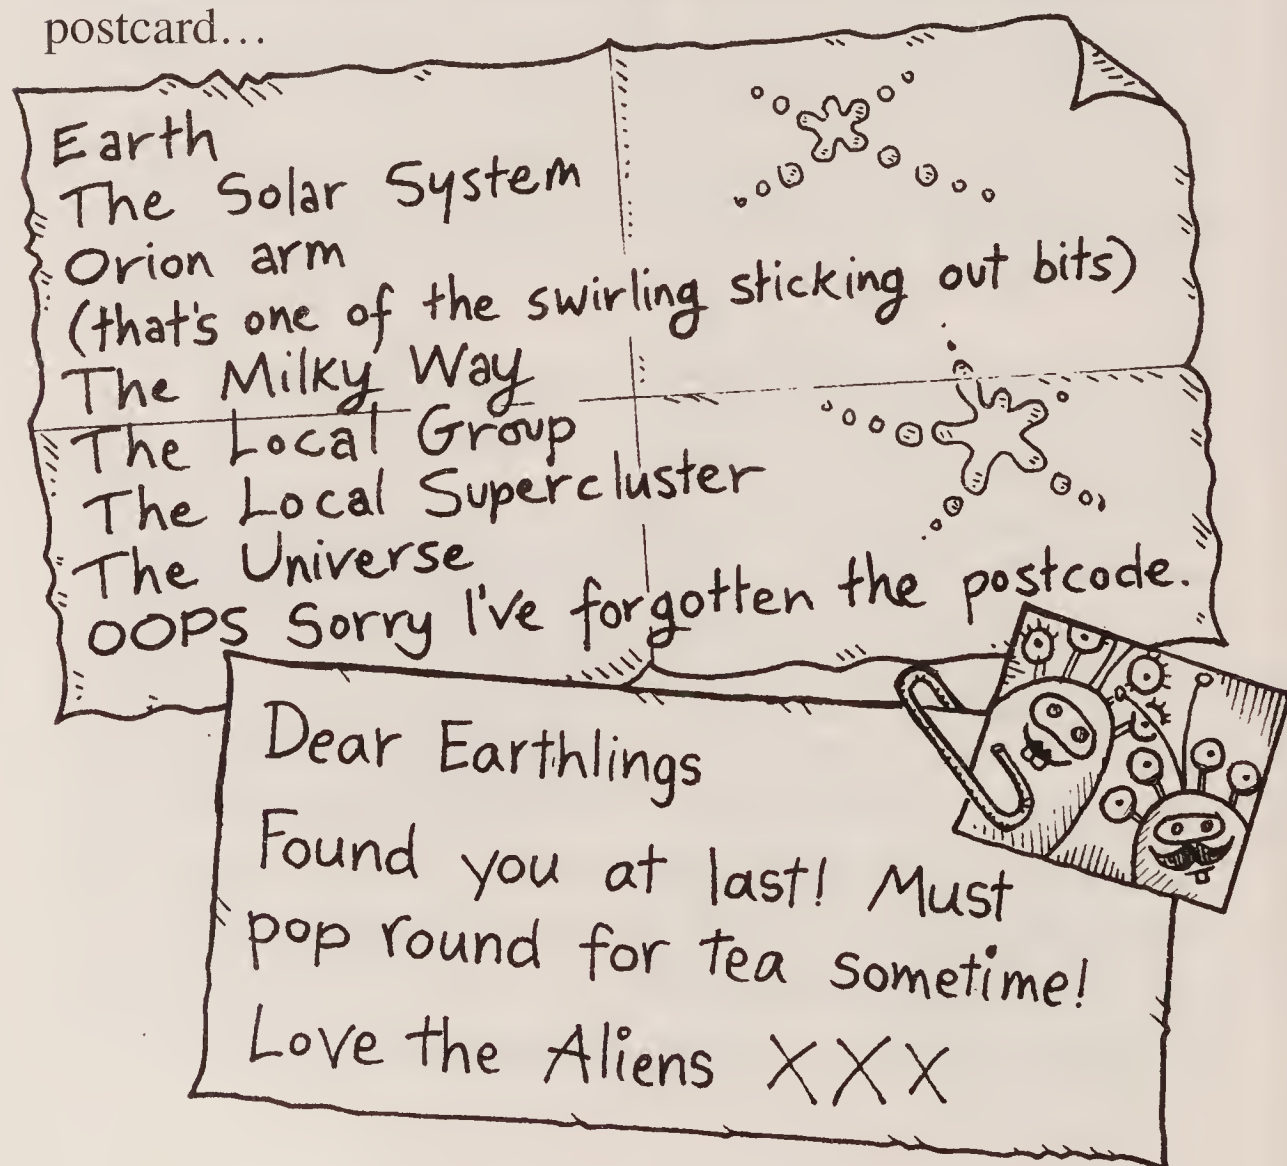 postcard...
Earth
The Solar System
Orion arm
(that's one of the swirling sticking out bits)
The Milky Way
The Local Group
The Local Supercluster
The Universe
OOPS Sorry I've forgotten the postcode.
Dear Earthlings
Found you at last! Must
pop round for tea sometime!
Love the Aliens XXX